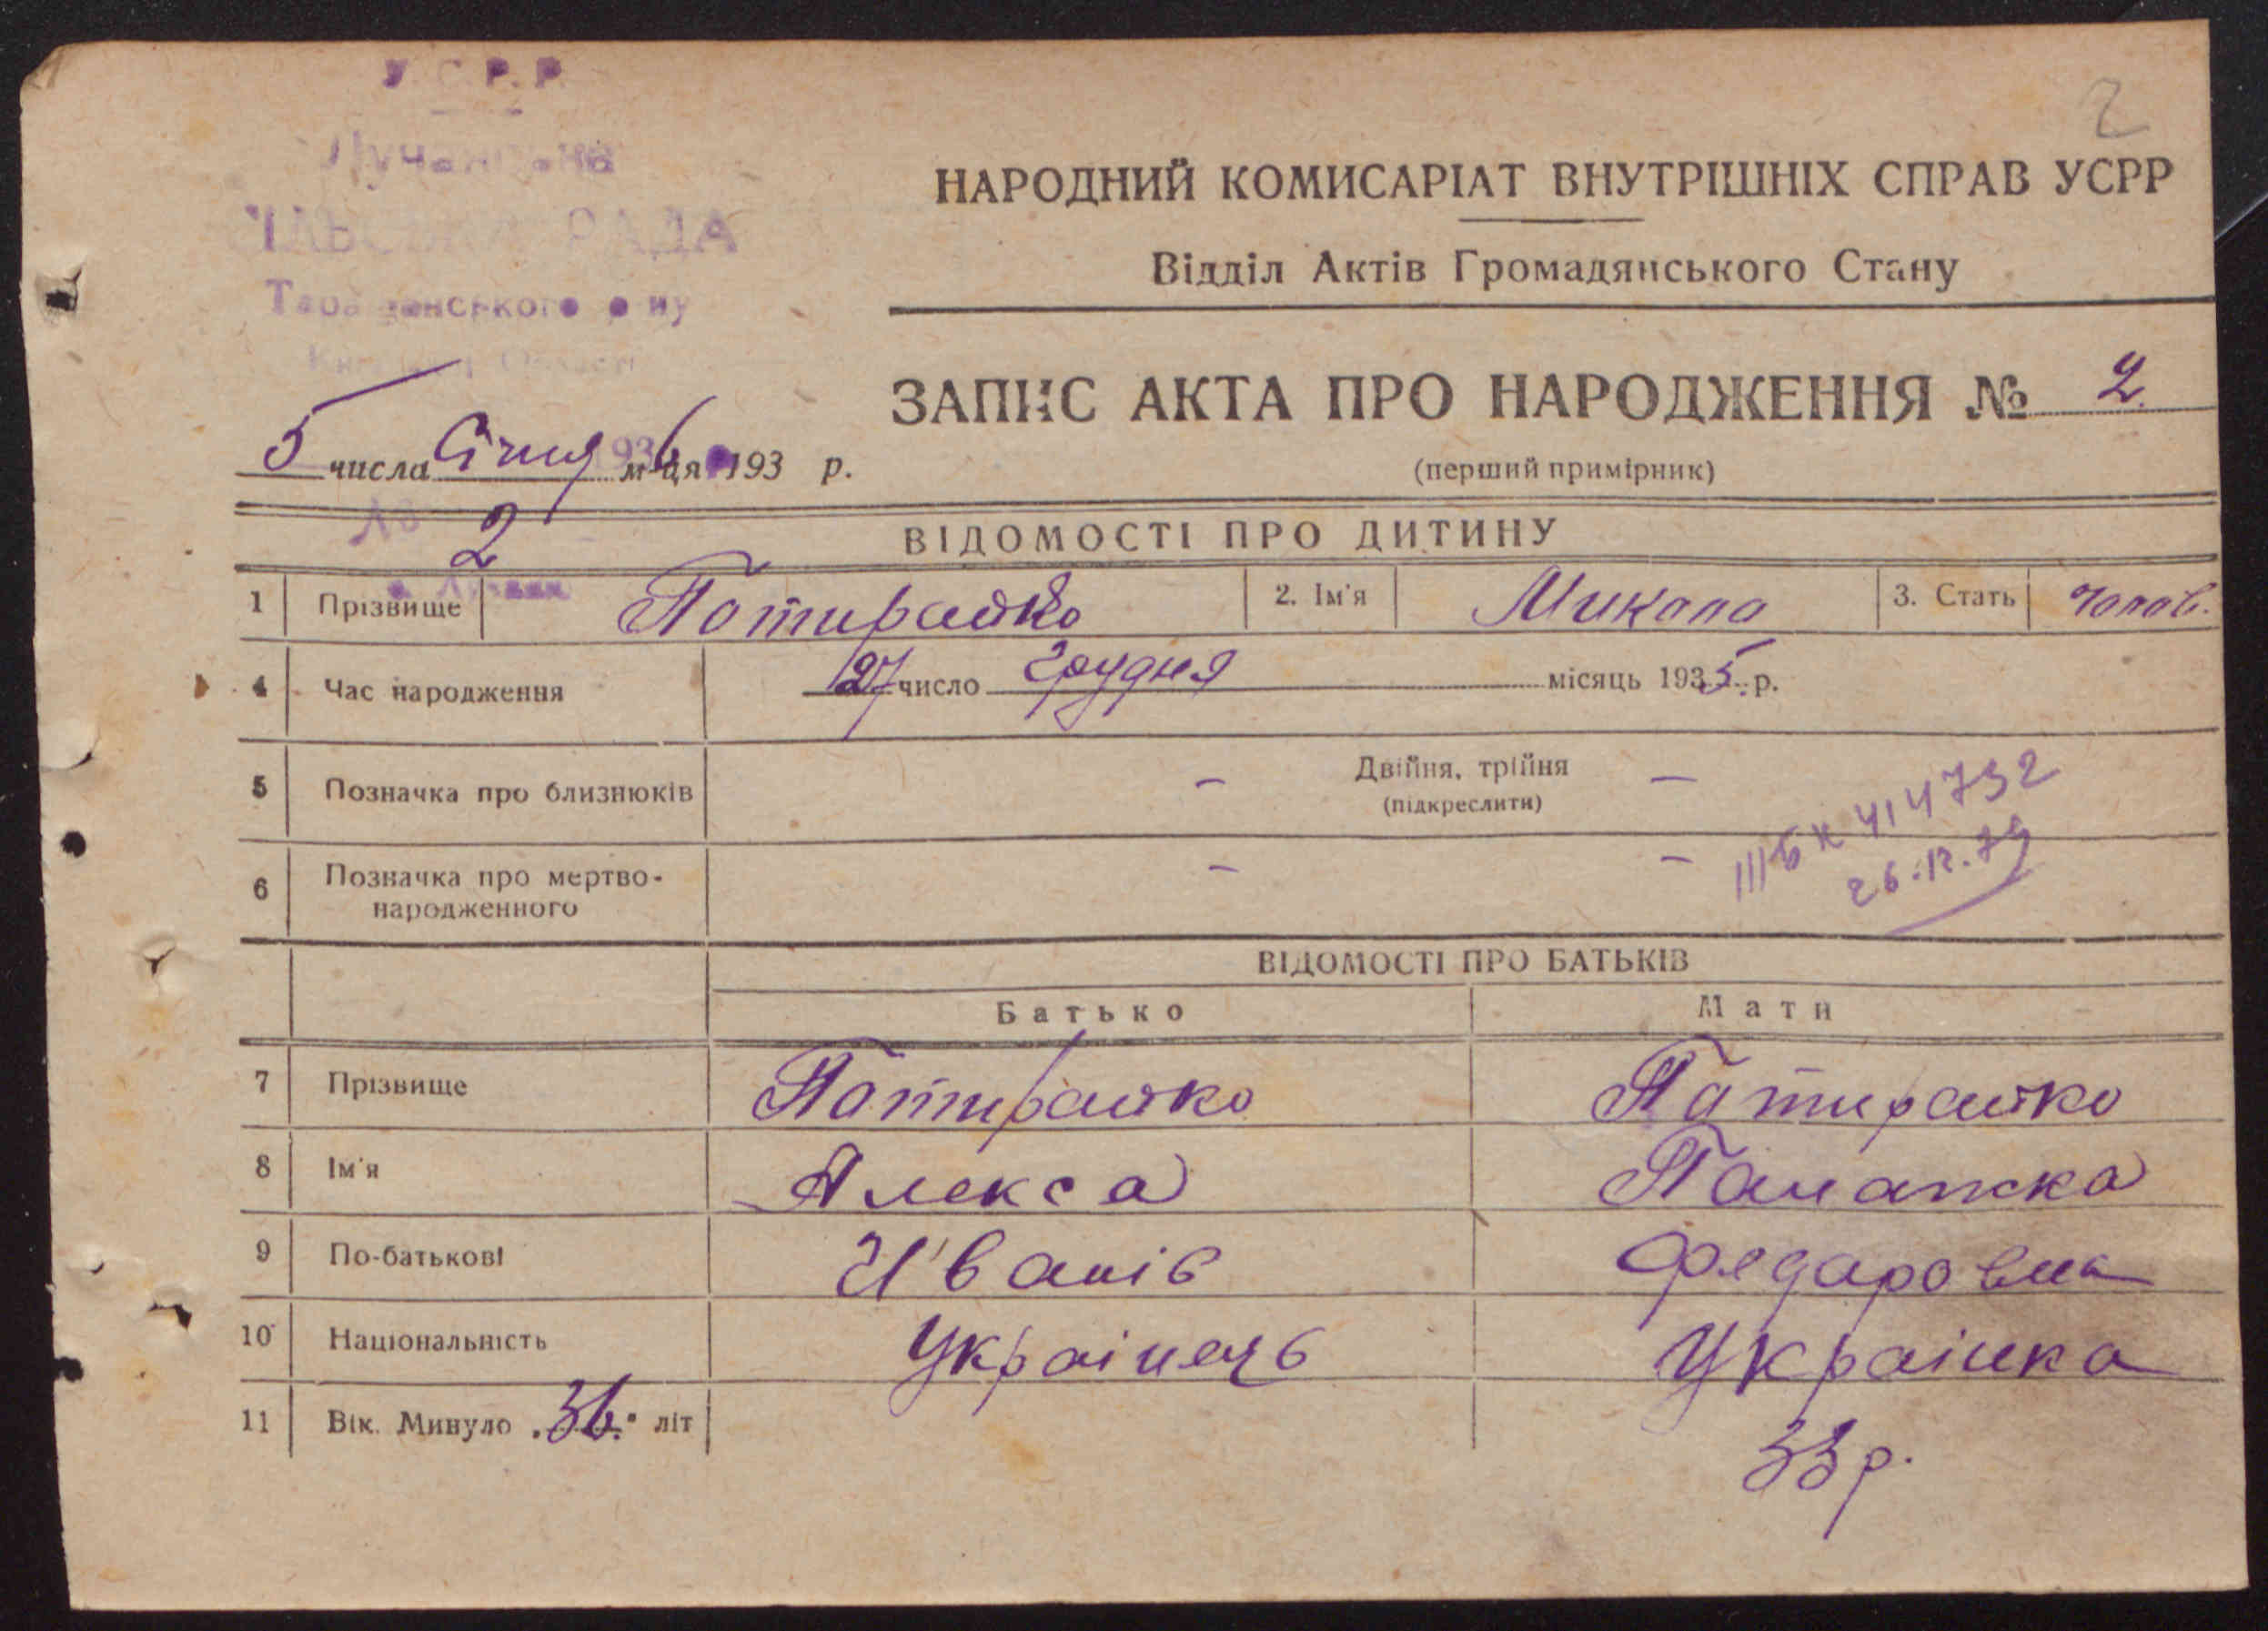 У.С.Р.Р.
2
СІЛЬСЬКА РАДА
НАРОДНИЙ КОМИСАРІАТ ВНУТРІШНІХ СПРАВ УСРР
Відділ Актів Громадянського Стану
ЗАПИС АКТА ПРО НАРОДЖЕННЯ № 2
5 числа Січня м-ця 1936 193 р.
(перший примірник)
2
ВІДОМОСТІ ПРО ДИТИНУ
1 Прізвище Потирайко 2. Ім'я Микола 3. Стать Чолов.
4 Час народження 27 число Грудня місяць 1935 р.
5 Позначка про близнюків – Двійня, трійня –
(підкреслити)
ІІІ БК 414732
6 Позначка про мертво-
народженного – –
26.12.79
ВІДОМОСТІ ПРО БАТЬКІВ
Батько Мати
7 Прізвище Потирайко Патирайко
8 Ім'я Алекса Панажка
9 По-батькові Иванів Федаровна
10 Національність Українець Українка
11 Вік. Минуло 36. літ
33 р.